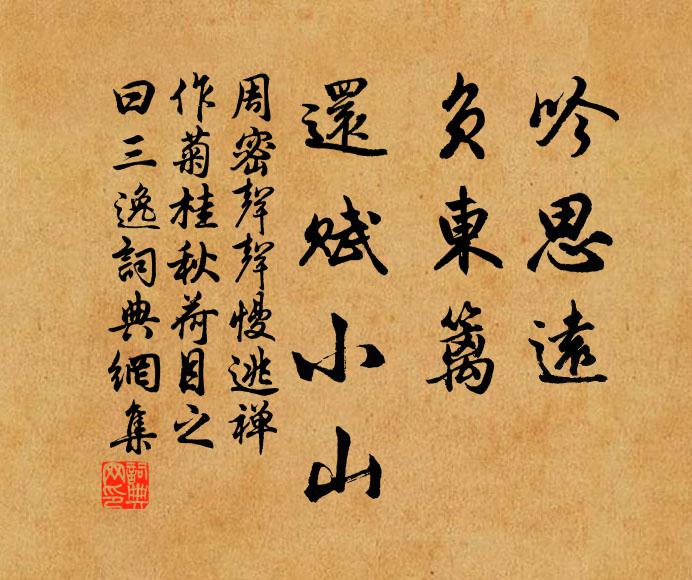 吟思遠
負東籬
還賦小山
周密聲聲慢逃禅
作菊桂秋荷目之
曰三逸詞典網集
詞典网印